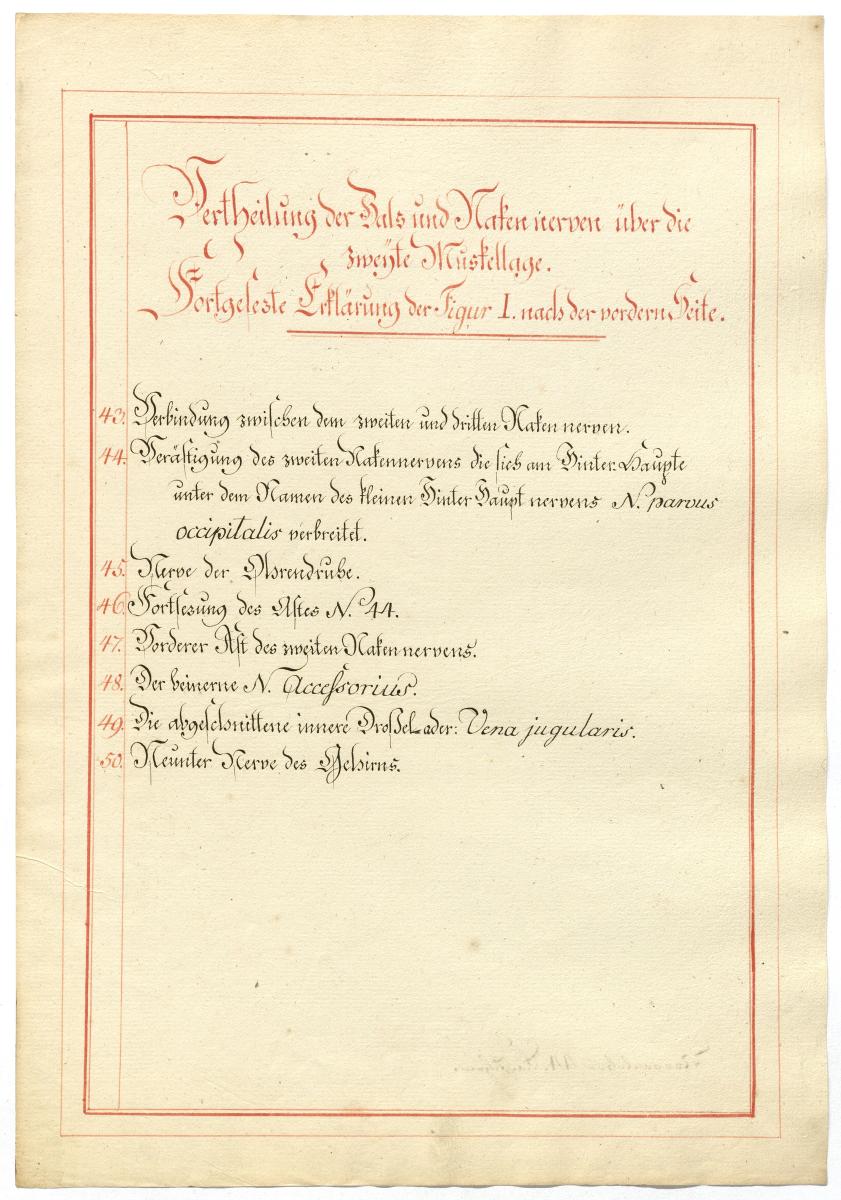 Vertheilung der Hals und Naken nerven über die
zweÿte Muskellage.
Fortgesezte Erklärung der Figur I. nach der vordern Seite.
43. Verbindung zwischen dem zweiten und dritten Naken nerven.
44. Verästigung des zweiten Nakennervens die sich am Hinter-Haupte
unter dem Namen des kleinen Hinter Haupt nervens N. parvus
occipitalis verbreitet.
45. Nerve der Ohrendruhe.
46. Fortsezung des Astes No. 44.
47. Vorderer Ast des zweiten Naken nervens.
48. Der beinerne N. Accessorius.
49. Die abgeschnittene innere Droßel-ader: Vena jugularis.
50. Neunter Nerve des Gehirns.